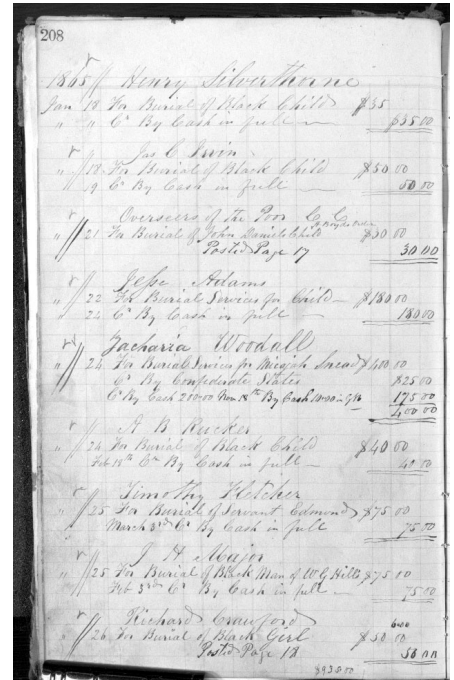 208
1865 Henry Silverthorne
Jan 18 For Burial of Black Child $35
" " Cr By Cash in full $35.00
Jas C Irvin
" 18 For Burial of Black Child $50.00
19 Cr By Cash in full 50.00
Overseers of the Poor C. C.
" 21 For Burial of John Daniels Child $30 00
Posted Page 17 30.00
Jesse Adams
" 22 For Burial Services for Child $180 00
" 24 Cr By Cash in full 180 00
Zacharia Woodall
" 24 For Burial Services for Micajah Snead $400.00
Cr By Confederate States $25 00
Cr By Cash 200.00 Nov. 18th By Cash in 175 00
400 00
A. B. Rucker
" 24 For Burial of Black Child $40 00
Feb 18th Cr By Cash in full 40 00
Timothy Fletcher
" 25 For Burial of Servant Edmond $75 00
March 3rd Cr By Cash in full 75 00
J. H. Major
" 25 For Burial of Black Man of W G Hill's $75 00
Feb 3rd Cr By Cash in full 75 00
Richard Crawford
" 26 For Burial of Black Girl $50 00
Posted Page 18 50 00
$935.00